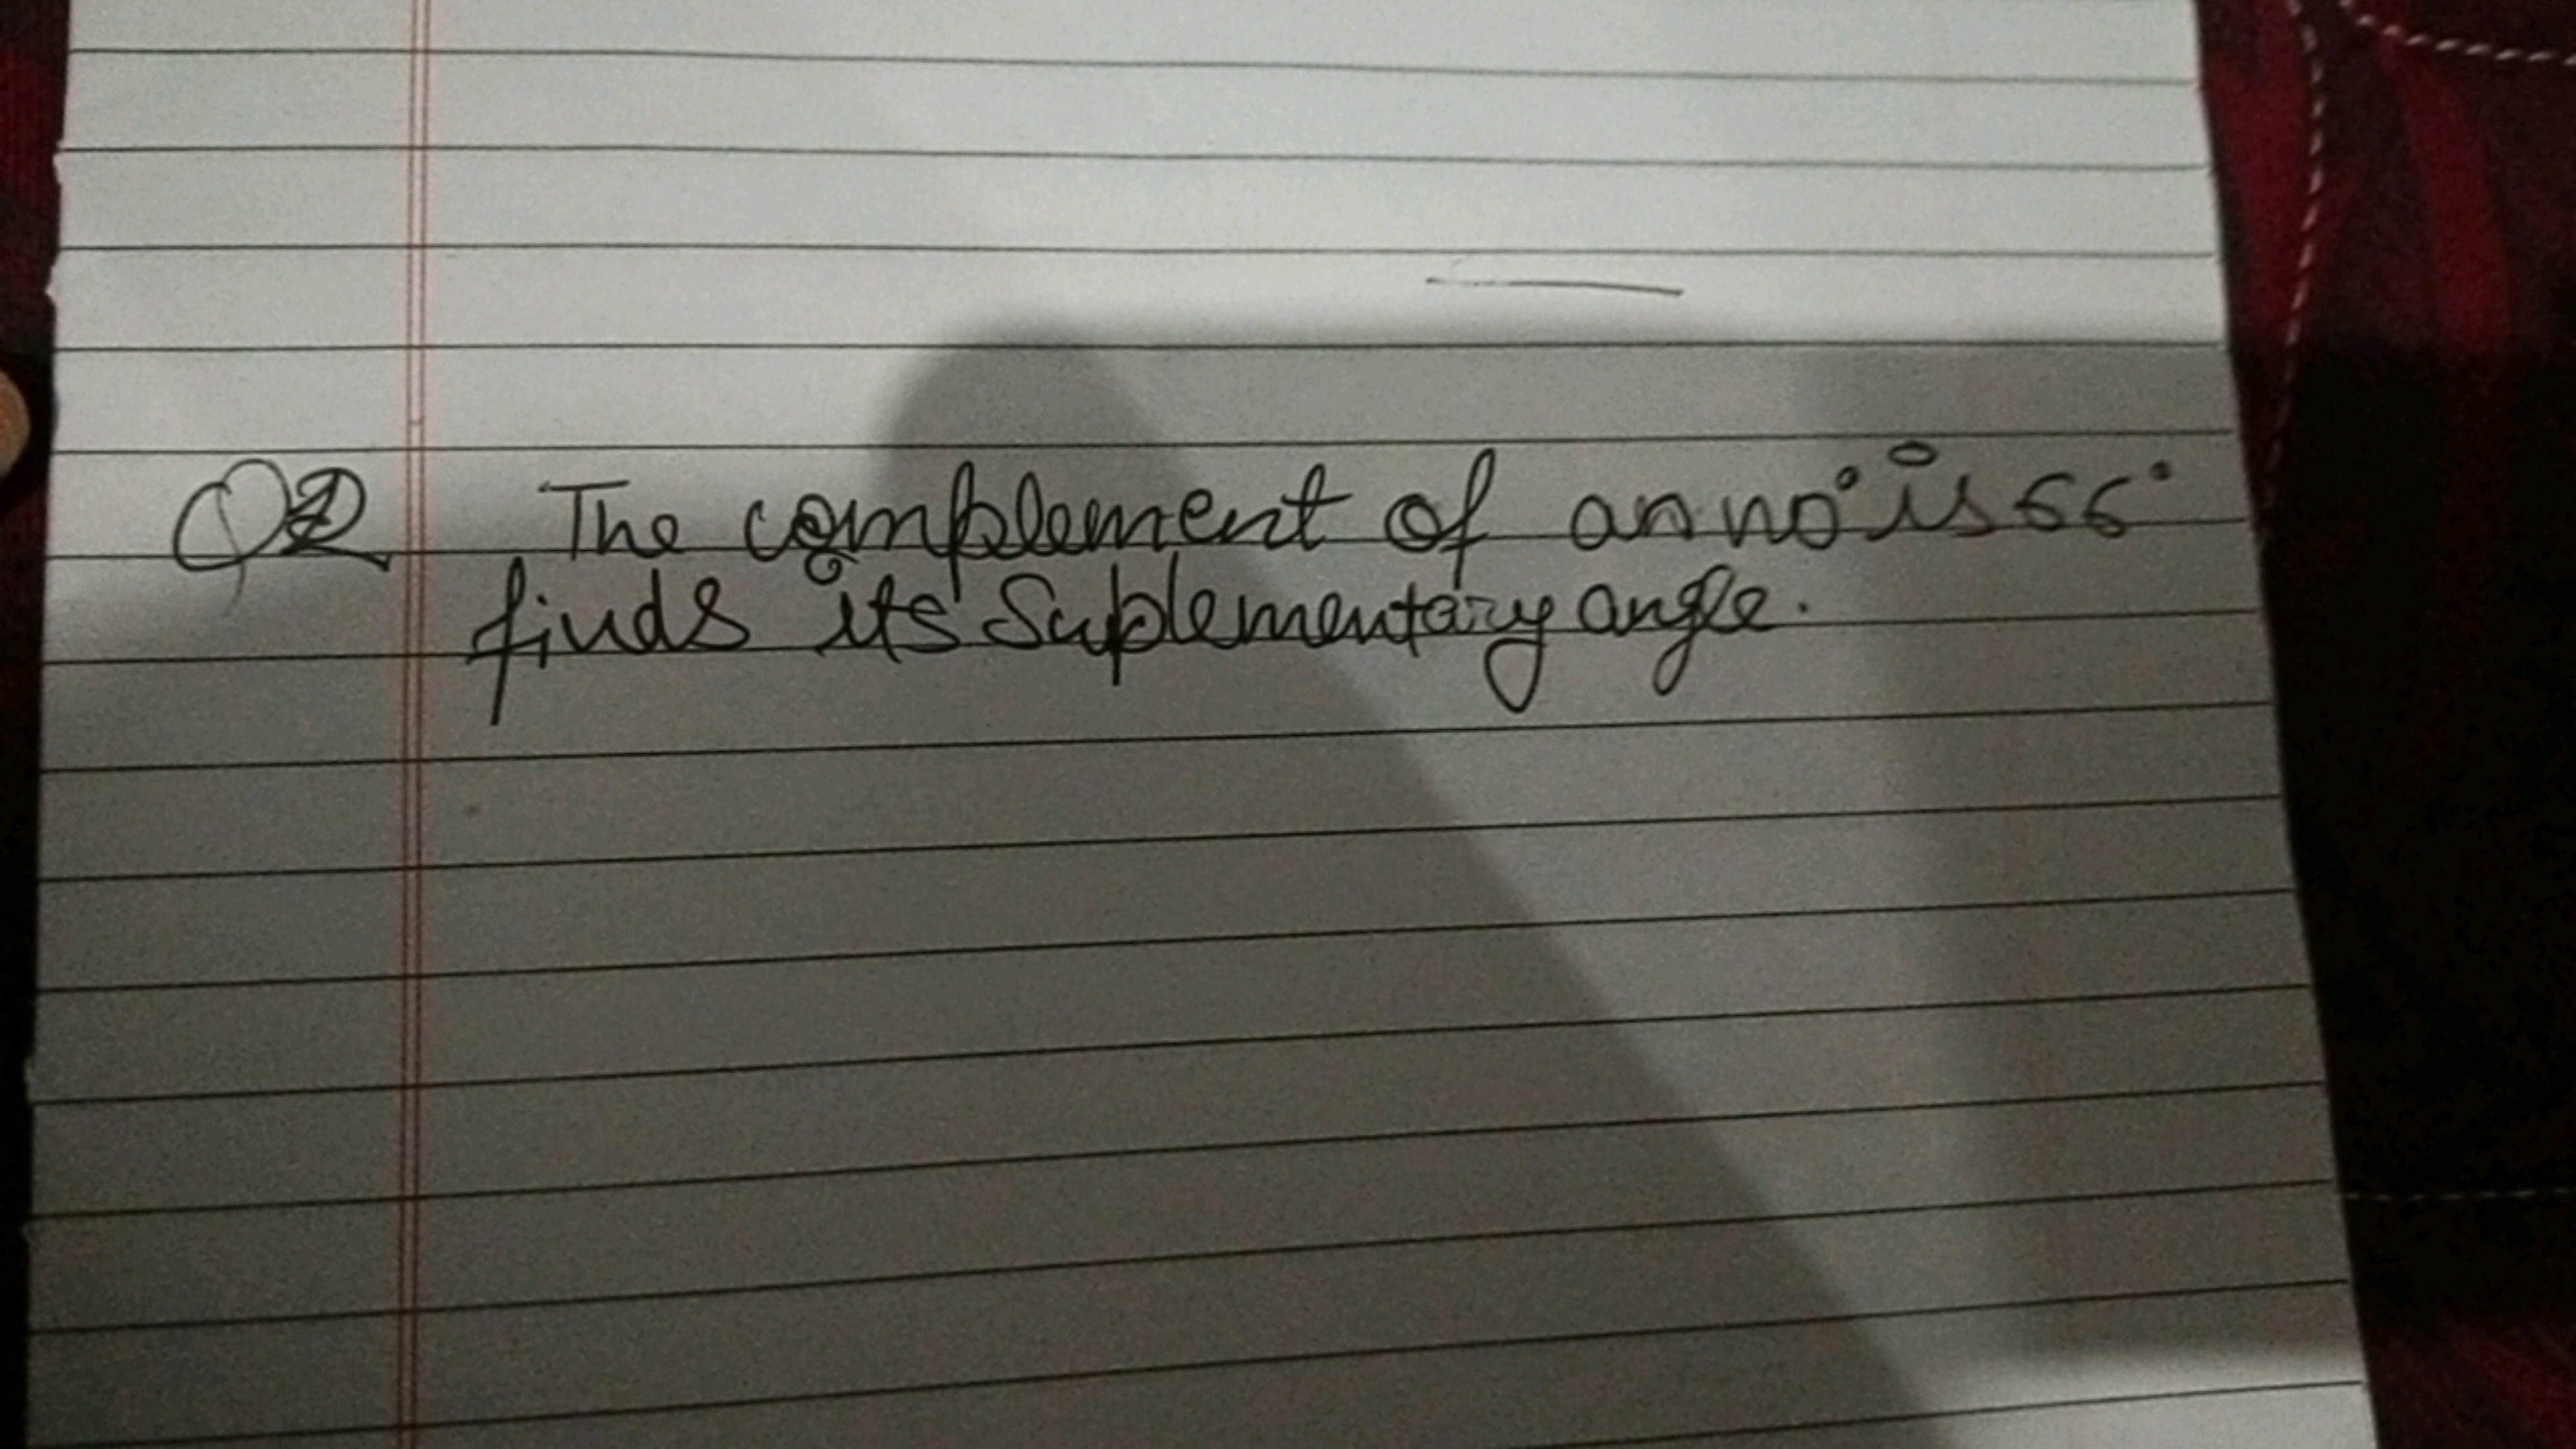 Q2 The complement of an no is 66°
finds its Suplementary angle.